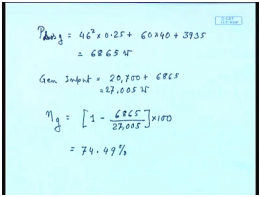 Plossg = 46² x 0.25 + 60x40 + 3935
= 6865 W
Gen Input = 20,700 + 6865
= 27.005 W
ηg = [1 - 6865/27,005] x100
= 74.49%